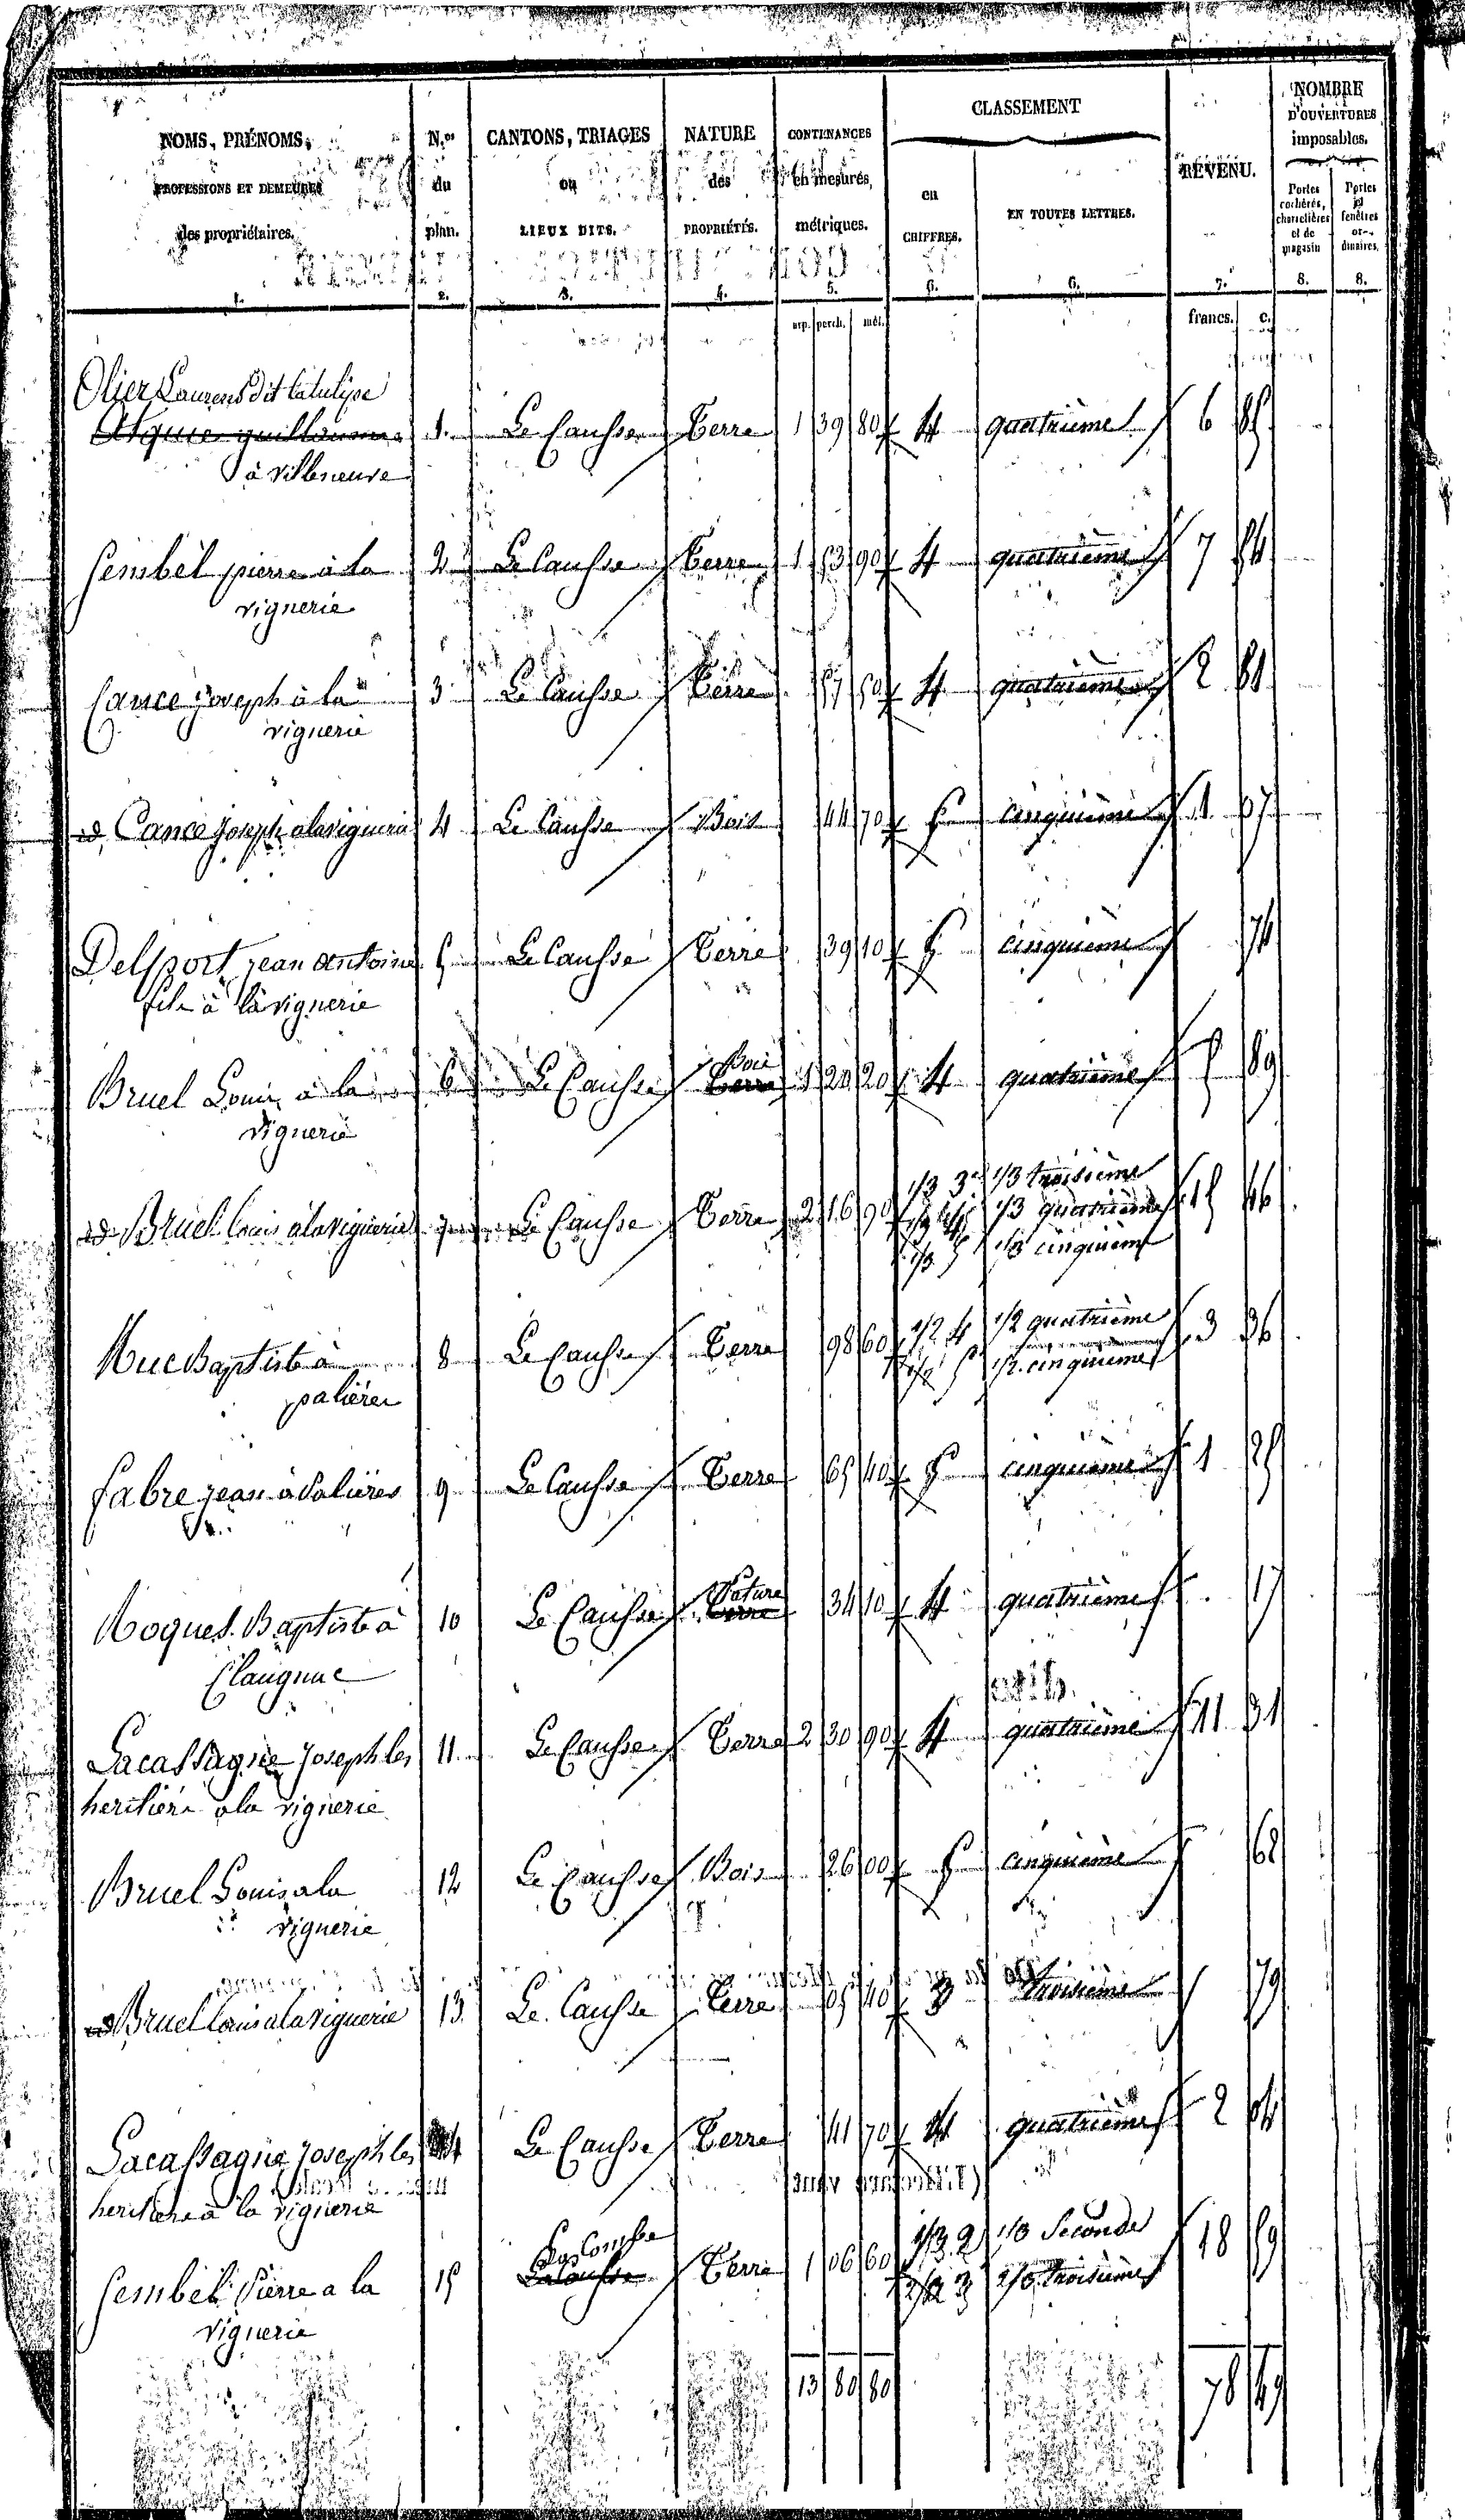 NOMS, PRÉNOMS,
PROFESSIONS ET DEMEURES
des propriétaires.
1.
N.os
du
plan.
2.
CANTONS, TRIAGES
ou
LIEUX DITS.
3.
NATURE
des
PROPRIÉTÉS.
4.
CONTENANCES
en mesures,
métriques.
5.
CLASSEMENT
en
CHIFFRES.
6.
EN TOUTES LETTRES.
6.
REVENU.
7.
NOMBRE
D'OUVERTURES
imposables.
Portes
cochères,
charretières
et de
magasin
8.
Portes
et
fenêtres
or-
dinaires.
8.
arp. perch. mèt. francs. c.
Olier Laurens dit latulipe
1. Le Causse Terre 1 39 80 4 quatrième 6 85
à villeneuve
Cembel pierre à la 2 Le Causse Terre 1 53 90 4 quatrième 7 54
vignerie
Cance joseph à la 3 Le Causse Terre 57 50 4 quatrième 2 81
vignerie
id. Cance joseph a la vignerie 4 Le Causse Bois 44 70 5 cinquième 1 07
Delport jean antoine 5 Le Causse Terre 39 10 5 cinquième 74
fils à la vignerie
Bois
Bruel Louis à la 6 Le Causse Terre 1 20 20 4 quatrième 5 89
vignerie
1/3 3e 1/3 troisième
id. Bruel Louis à la vignerie 7 Le Causse Terre 2 16 90 1/3 4 1/3 quatrième 15 46
1/3 5 1/3 cinquième
Huc Baptiste à 8 Le Causse Terre 98 60 1/2 4 1/2 quatrième 3 36
palières 1/2 5 1/2 cinquième
fabre jean à Palières 9 Le Causse Terre 65 40 5 cinquième 1 25
Pature
Roques Baptiste à 10 Le Causse Terre 34 10 4 quatrième 17
Claugnac
Lacassagne Joseph les 11. Le Causse Terre 2 30 90 4 quatrième 11 31
heritiers a la vignerie
Bruel Louis a la 12 Le Causse Bois 26 00 5 cinquième 62
vignerie
id Bruel Louis a la vignerie 13. Le Causse Terre 05 40 3 troisième 79
Lacassagne Joseph les 14 Le Causse Terre 41 70 4 quatrième 2 04
heritiers à la vignerie
Cembel Pierre a la 15 Terre 1 06 60 1/3 2 1/3 Seconde 18 59
vignerie 2/3 3 2/3 troisième
13 80 80 78 49